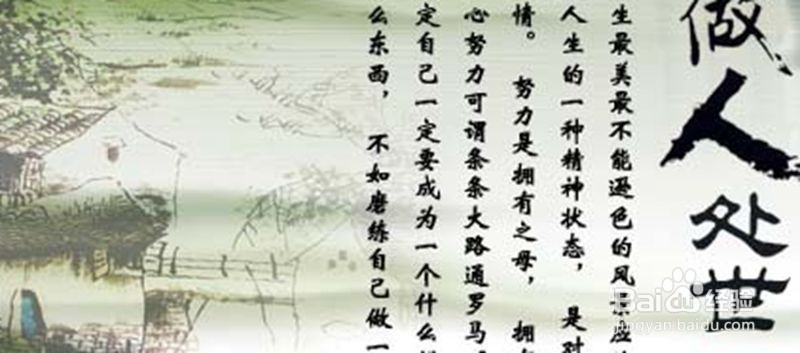 做人处世
生最美最不能逊色的风景应
人生的一种精神状态，是对
情。努力是拥有之母，拥有
心努力可谓条条大路通罗马
定自己一定要成为一个什么
么东西，不如磨练自己做一
Baidu经验
jingyan.baidu.com